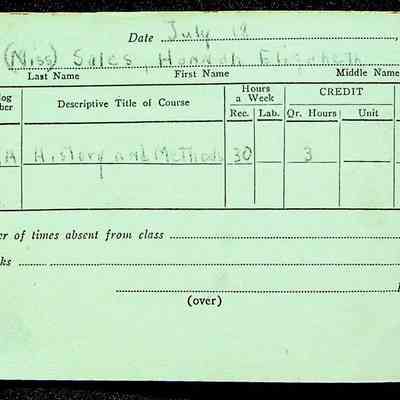 Date July 18
(Miss) Sales, Hannah Elizabeth
Last Name First Name Middle Name
log Hours CREDIT
ber Descriptive Title of Course a Week
Rec. Lab. Qr. Hours Unit
A History and Methods 30 3
er of times absent from class
ks
(over)